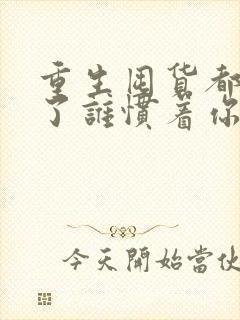 重生囤货都
了誰慣着你
今天開始當伙